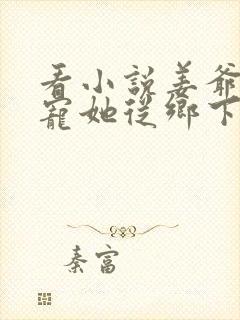 看小說姜爺
寵她從鄉下
秦富